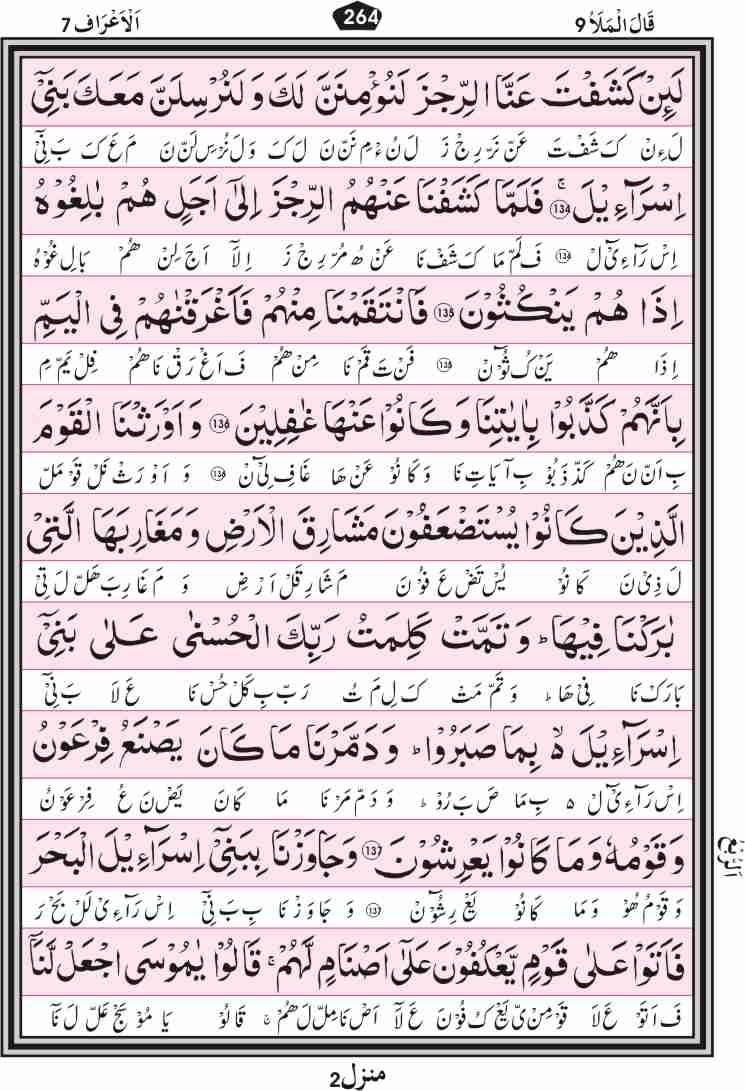 اَلْاَعْرَاف 7 264 قَالَ الْمَلَاُ 9
لَئِنْ كَشَفْتَ عَنَّا الرِّجْزَ لَنُؤْمِنَنَّ لَكَ وَ لَنُرْسِلَنَّ مَعَكَ بَنِیْۤ
لَ ءِنْ كَ شَفْ تَ عَنْ نَرْ رِجْ زَ لَ نُ ءْ مِ نَنْ نَ لَ كَ وَ لَ نُرْ سِ لَنْ نَ مَ عَ كَ بَ نِیْۤ
اِسْرَآءِیْلَ ۚ۝134 فَلَمَّا كَشَفْنَا عَنْهُمُ الرِّجْزَ اِلٰۤی اَجَلٍ هُمْ بٰلِغُوْهُ
اِسْ رَآ ءِیْ لَ 134 فَ لَمْ مَا كَ شَفْ نَا عَنْ هُ مُرْ رِجْ زَ اِ لَاۤ اَ جَ لِنْ هُمْ بَا لِ غُوْ هُ
اِذَا هُمْ یَنْكُثُوْنَ ۝135 فَانْتَقَمْنَا مِنْهُمْ فَاَغْرَقْنٰهُمْ فِی الْیَمِّ
اِ ذَا هُمْ یَنْ كُ ثُوْٓ نْ 135 فَنْ تَ قَمْ نَا مِنْ هُمْ فَ اَغْ رَقْ نَا هُمْ فِلْ یَمْ مِ
بِاَنَّهُمْ كَذَّبُوْا بِاٰیٰتِنَا وَ كَانُوْا عَنْهَا غٰفِلِیْنَ ۝136 وَ اَوْرَثْنَا الْقَوْمَ
بِ اَنْ نَ هُمْ كَذْ ذَ بُوْ بِ آ یَا تِ نَا وَ كَا نُوْ عَنْ هَا غَا فِ لِیْٓ نْ 136 وَ اَوْ رَثْ نَلْ قَوْ مَلْ
الَّذِیْنَ كَانُوْا یُسْتَضْعَفُوْنَ مَشَارِقَ الْاَرْضِ وَ مَغَارِبَهَا الَّتِیْ
لَ ذِیْ نَ كَا نُوْ یُسْ تَضْ عَ فُوْ نَ مَ شَا رِ قَلْ اَرْ ضِ وَ مَ غَا رِ بَ هَلْ لَ تِیْ
بٰرَكْنَا فِیْهَا ؕ وَ تَمَّتْ كَلِمَتُ رَبِّكَ الْحُسْنٰی عَلٰی بَنِیْۤ
بَا رَكْ نَا فِیْ هَا ؕ وَ تَمْ مَتْ كَ لِ مَ تُ رَبْ بِ كَلْ حُسْ نَا عَ لَا بَ نِیْۤ
اِسْرَآءِیْلَ ۙ۬ بِمَا صَبَرُوْا ؕ وَ دَمَّرْنَا مَا كَانَ یَصْنَعُ فِرْعَوْنُ
اِسْ رَآ ءِیْ لَ ۵ بِ مَا صَ بَ رُوْ ؕ وَ دَمْ مَرْ نَا مَا كَا نَ یَصْ نَ عُ فِرْ عَوْ نُ
وَ قَوْمُهٗ وَ مَا كَانُوْا یَعْرِشُوْنَ ۝137 وَ جَاوَزْنَا بِبَنِیْۤ اِسْرَآءِیْلَ الْبَحْرَ
وَ قَوْ مُ هُوْ وَ مَا كَا نُوْ یَعْ رِ شُوْٓ نْ 137 وَ جَا وَزْ نَا بِ بَ نِیْۤ اِسْ رَآ ءِیْ لَلْ بَحْ رَ
اَلرُّبْعُ
فَاَتَوْا عَلٰی قَوْمٍ یَّعْكُفُوْنَ عَلٰۤی اَصْنَامٍ لَّهُمْ ۚ قَالُوْا یٰمُوْسَی اجْعَلْ لَّنَاۤ
فَ اَ تَوْ عَ لَا قَوْ مِنْ یَّعْ كُ فُوْ نَ عَ لَاۤ اَصْ نَا مِلْ لَ هُمْ ۚ قَا لُوْ یَا مُوْ سَجْ عَلْ لَ نَاۤ
منزل 2